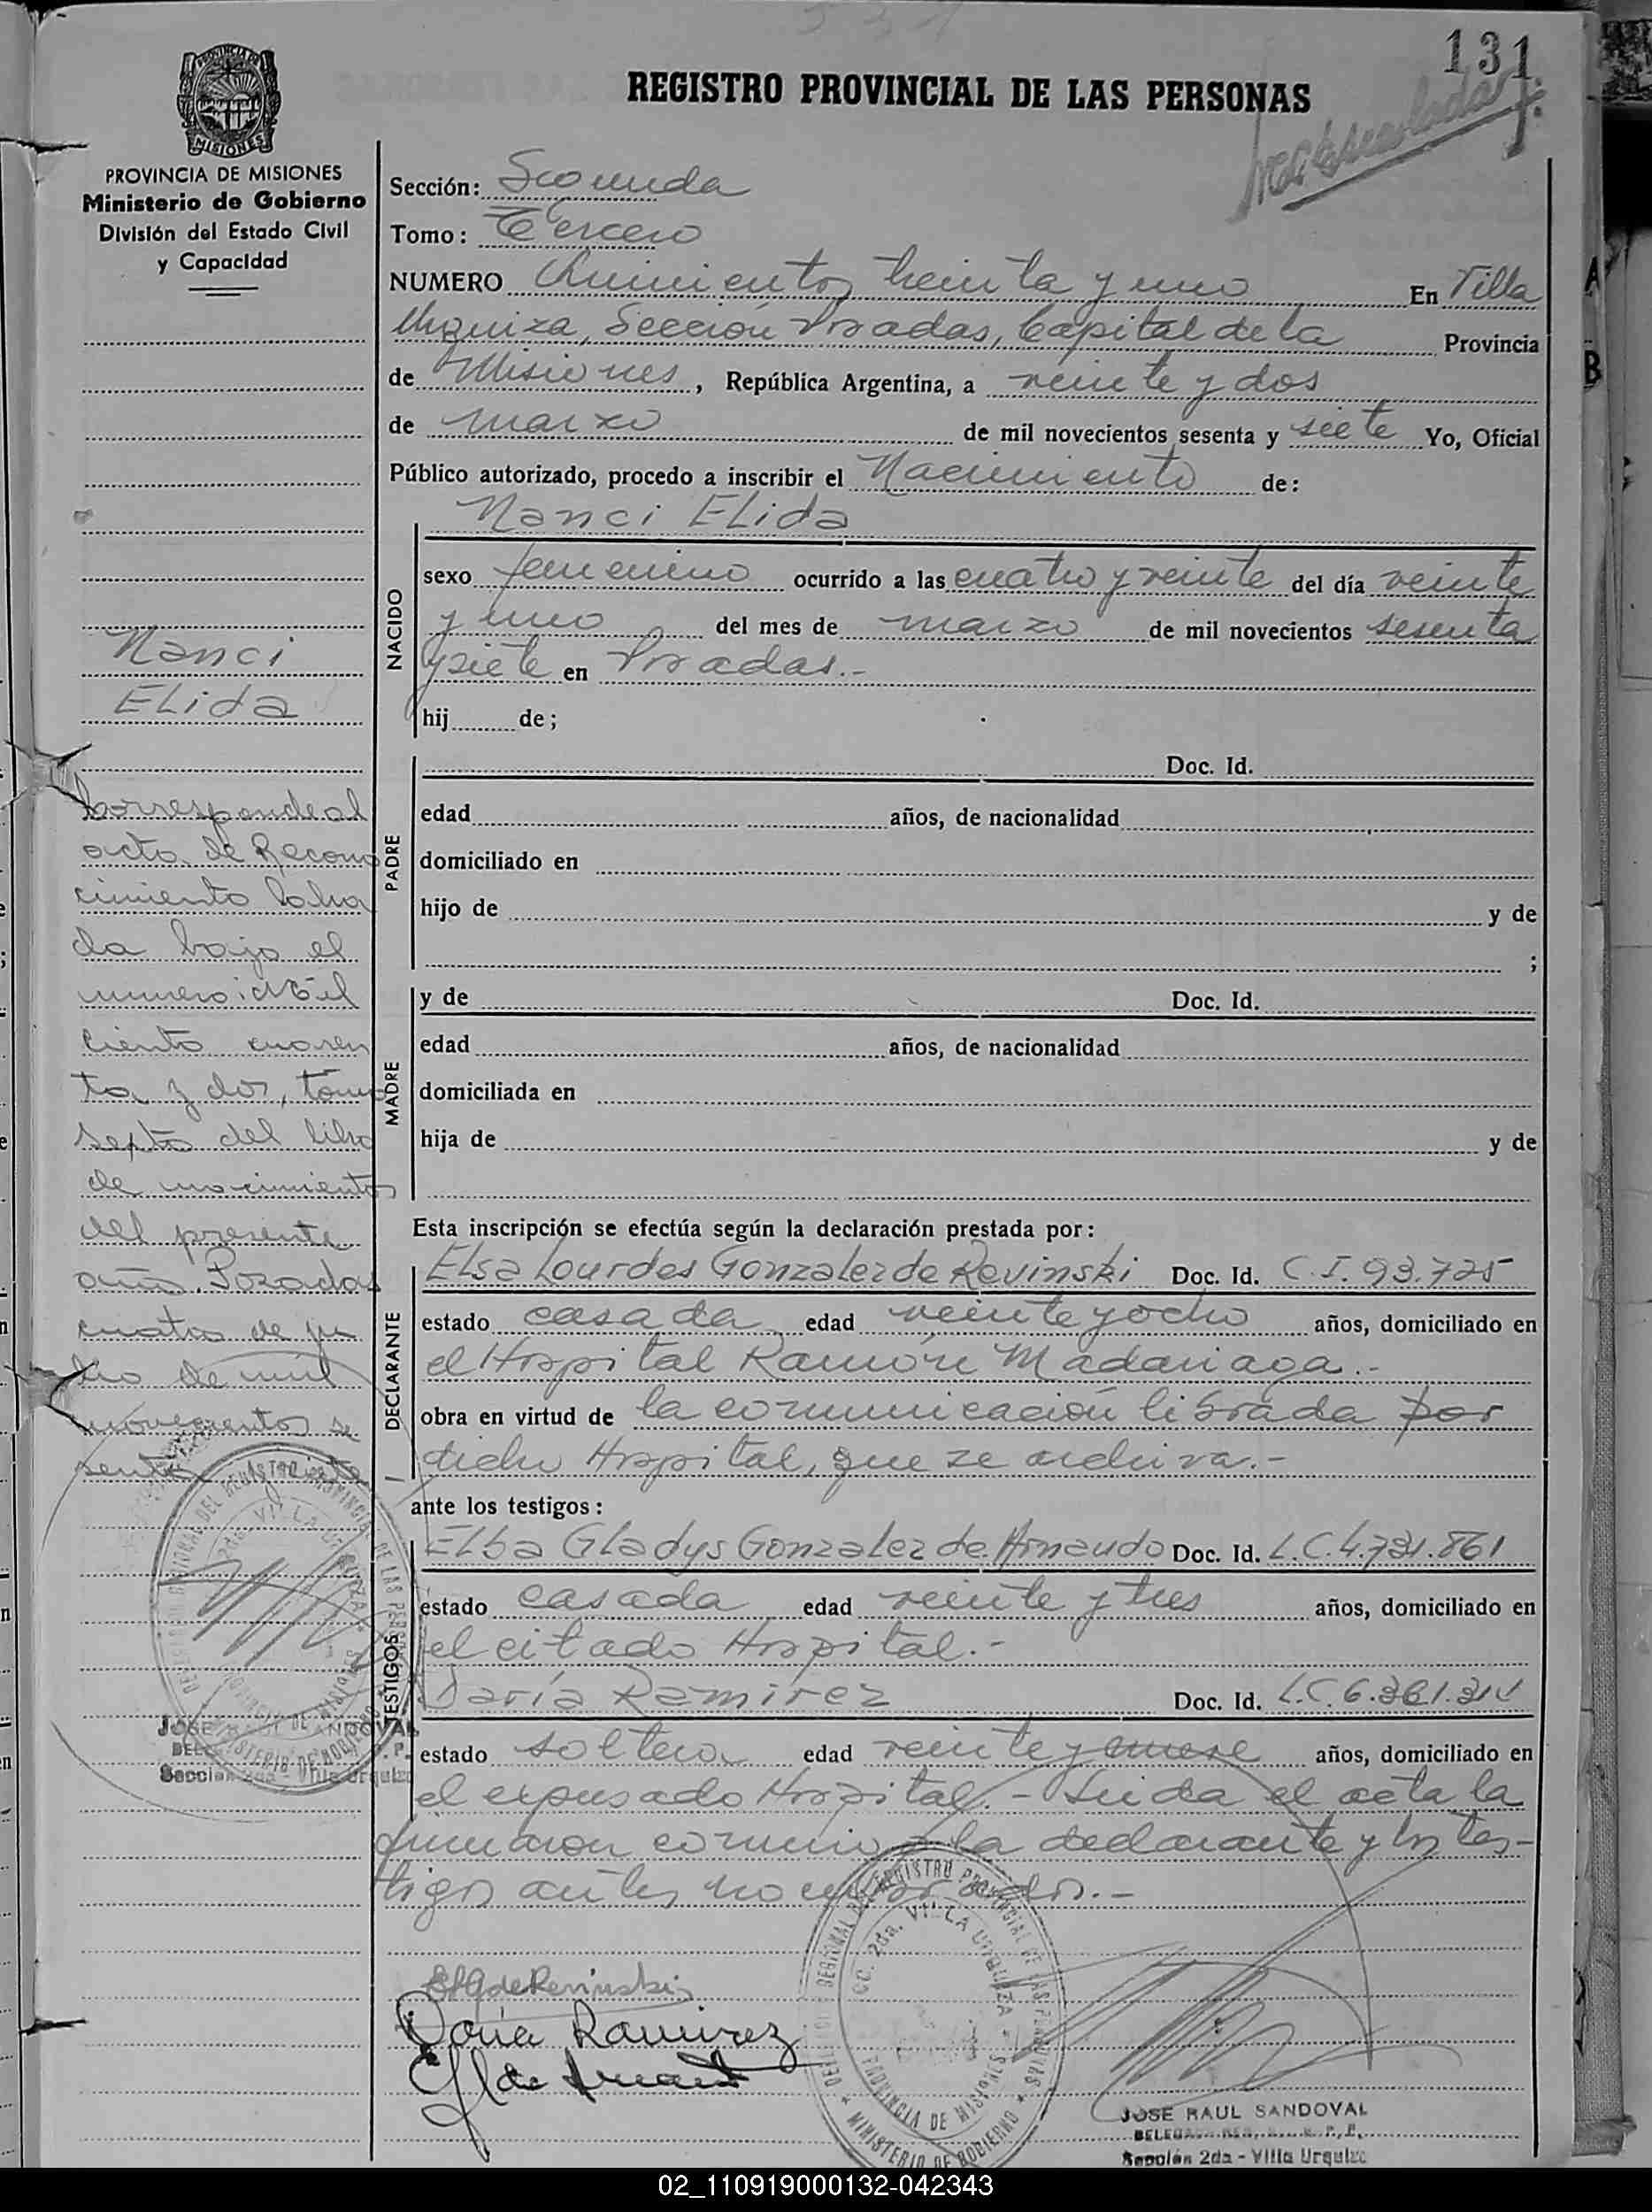 131
REGISTRO PROVINCIAL DE LAS PERSONAS
MISIONES
PROVINCIA DE MISIONES
Ministerio de Gobierno
División del Estado Civil
y Capacidad
Sección: Segunda
Tomo: Tercero
NUMERO Quinientos treinta y uno En Villa
Urquiza, Sección Posadas, Capital de la Provincia
de Misiones, República Argentina, a veinte y dos
de marzo de mil novecientos sesenta y siete Yo, Oficial
Público autorizado, procedo a inscribir el Nacimiento de:
Nanci Elida
NACIDO
sexo femenino ocurrido a las cuatro y veinte del día veinte
y uno del mes de marzo de mil novecientos sesenta
y siete en Posadas.-
hij de;
Nanci
Elida
PADRE
Doc. Id.
edad años, de nacionalidad
domiciliado en
hijo de y de
;
MADRE
y de Doc. Id.
edad años, de nacionalidad
domiciliada en
hija de y de
Corresponde al
acta de Recono
cimiento labra
da bajo el
numero: Mil
ciento cuaren
ta y dos, tomo
septo del libro
de nacimientos
del presente
año. Posadas
cuatro de ju
de mil
novecientos se
senta y siete
Esta inscripción se efectúa según la declaración prestada por:
DECLARANTE
Elsa Lourdes Gonzalez de Revinski Doc. Id. C.I. 93.725
estado casada edad veinte y ocho años, domiciliado en
el Hospital Ramón Madariaga.-
obra en virtud de la comunicación librada por
dicho Hospital, que se archiva.-
ante los testigos:
TESTIGOS
Elba Gladys Gonzalez de Arnaudo Doc. Id. L.C. 4.731.861
estado casada edad veinte y tres años, domiciliado en
el citado Hospital.-
Daría Ramirez Doc. Id. L.C. 6.361.314
estado soltera edad veinte y años, domiciliado en
el expresado Hospital.- Leída el acta la
firmaron conmigo la declarante y los tes-
tigos antes nombrados.-
ELG de Revinski
Daría Ramirez
JOSE RAUL SANDOVAL
Sección 2da - Villa Urquiza
DELEGACION REGIONAL DEL REGISTRO PROVINCIAL DE LAS PERSONAS
SECC. 2da. VILLA URQUIZA
PROVINCIA DE MISIONES
MINISTERIO DE GOBIERNO
JOSE RAUL SANDOVAL
Sección 2da - Villa Urquiza
02_110919000132-042343